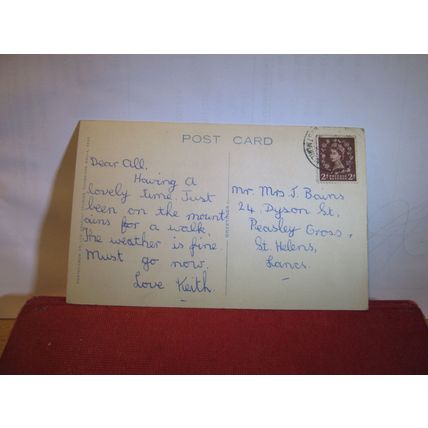 POST CARD
Dear All.
Having a
lovely time. Just
been on the mount
ains for a walk.
The weather is fine.
Must go now.
Love Keith
Mr. Mrs J. Bains
24, Dyson St,
Peasley Cross,
St. Helens,
Lancs.
2d 2d